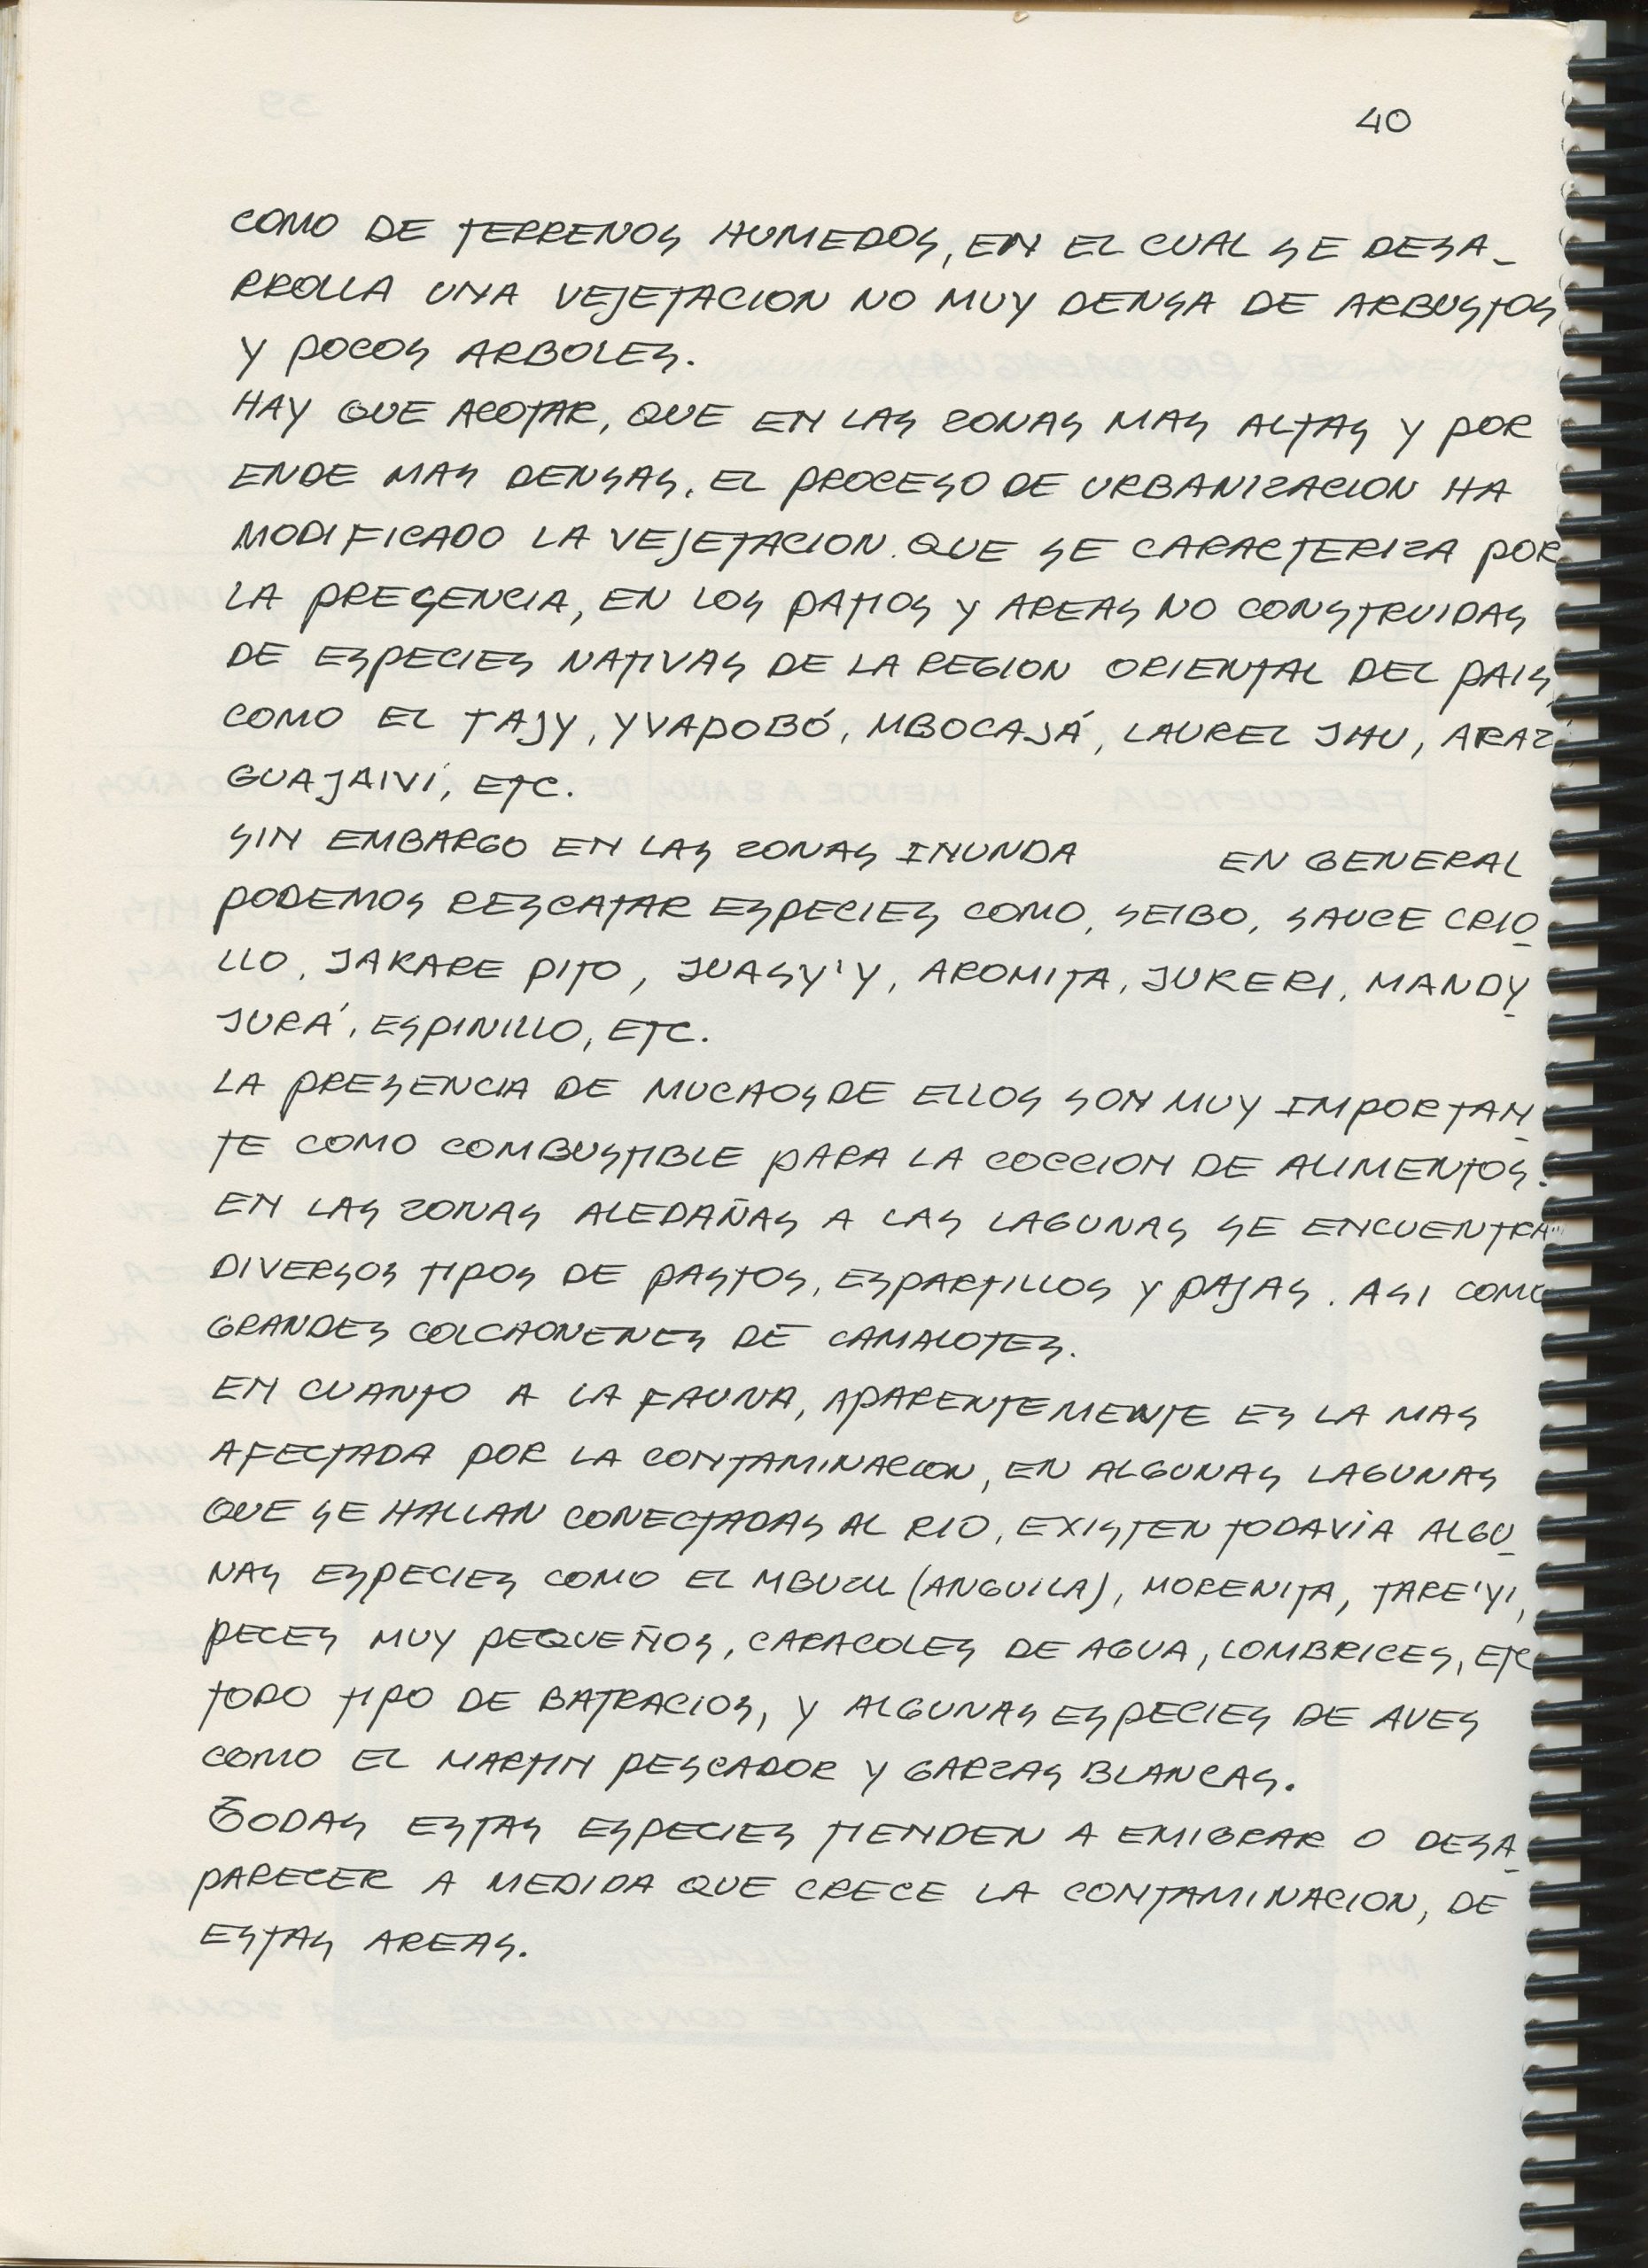 40
COMO DE TERRENOS HUMEDOS, EN EL CUAL SE DESA-
RROLLA UNA VEJETACION NO MUY DENSA DE ARBUSTOS
Y POCOS ARBOLES.
HAY QUE ACOTAR, QUE EN LAS ZONAS MAS ALTAS Y POR
ENDE MAS DENSAS, EL PROCESO DE URBANIZACION HA
MODIFICADO LA VEJETACION. QUE SE CARACTERIZA POR
LA PRESENCIA, EN LOS PATIOS Y AREAS NO CONSTRUIDAS
DE ESPECIES NATIVAS DE LA REGION ORIENTAL DEL PAIS,
COMO EL TAJY, YVAPOBÓ, MBOCAJÁ, LAUREL JHU,
GUAJAIVÍ, ETC.
SIN EMBARGO EN LAS ZONAS INUNDA EN GENERAL
PODEMOS RESCATAR ESPECIES COMO, SEIBO, SAUCE CRIO
LLO, JAKARE PITO, JUASY'Y, AROMITA, JUKERI, MANDY
JURÁ, ESPINILLO, ETC.
LA PRESENCIA DE MUCHOS DE ELLOS SON MUY IMPORTAN
TE COMO COMBUSTIBLE PARA LA COCCION DE ALIMENTOS.
EN LAS ZONAS ALEDAÑAS A LAS LAGUNAS SE ENCUENTRA
DIVERSOS TIPOS DE PASTOS, ESPARTILLOS Y PAJAS. ASI COMO
GRANDES COLCHONENES DE CAMALOTES.
EN CUANTO A LA FAUNA, APARENTEMENTE ES LA MAS
AFECTADA POR LA CONTAMINACION, EN ALGUNAS LAGUNAS
QUE SE HALLAN CONECTADAS AL RIO, EXISTEN TODAVÍA ALGU
NAS ESPECIES COMO EL MBUZU (ANGUILA), MORENITA, TARE'YI,
PECES MUY PEQUEÑOS, CARACOLES DE AGUA, LOMBRICES, ETC
TODO TIPO DE BATRACIOS, Y ALGUNAS ESPECIES DE AVES
COMO EL MARTIN PESCADOR Y GARZAS BLANCAS.
TODAS ESTAS ESPECIES TIENDEN A EMIGRAR O DESA
PARECER A MEDIDA QUE CRECE LA CONTAMINACION, DE
ESTAS AREAS.